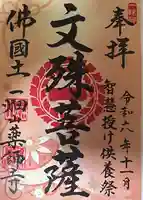 奉拝
令和六年十一月
智慧授け供養祭
文殊菩薩
佛國土 一畑山薬師寺